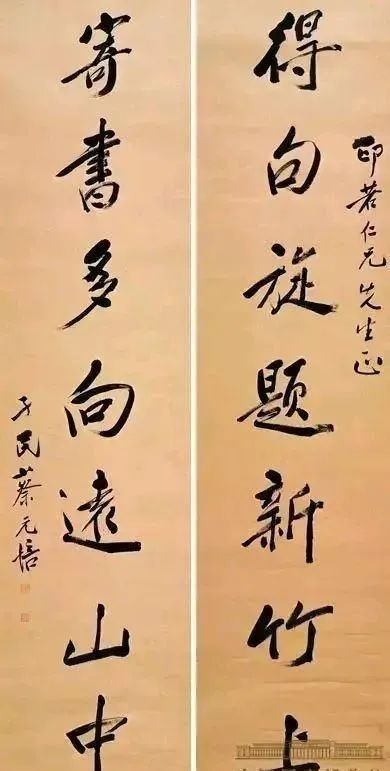 印若仁兄先生正
得句旋題新竹上
寄書多向遠山中
孑民蔡元培